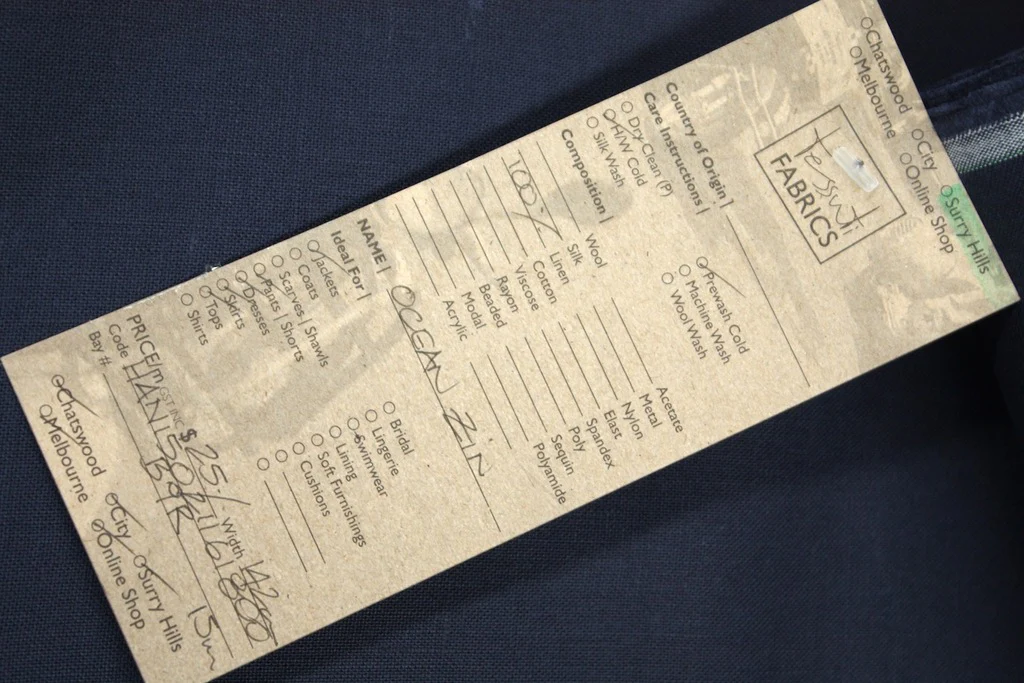 Chatswood City Surry Hills
Melbourne Online Shop
tessuti
FABRICS
Country of Origin |
Care Instructions |
Dry Clean (P) Prewash Cold
H/W Cold Machine Wash
Silk Wash Wool Wash
Composition |
Wool Acetate
Silk Metal
100% Linen Nylon
Cotton Elast
Viscose Spandex
Rayon Poly
Beaded Sequin
Modal Polyamide
Acrylic
NAME | OCEAN ZIN
Ideal For |
Jackets Bridal
Coats Lingerie
Scarves | Shawls Swimwear
Pants | Shorts Lining
Dresses Soft Furnishings
Skirts Cushions
Tops
Shirts
PRICE/m GST INC $25/ Width
Code
Bay # BOR 15m
Chatswood City Surry Hills
Melbourne Online Shop